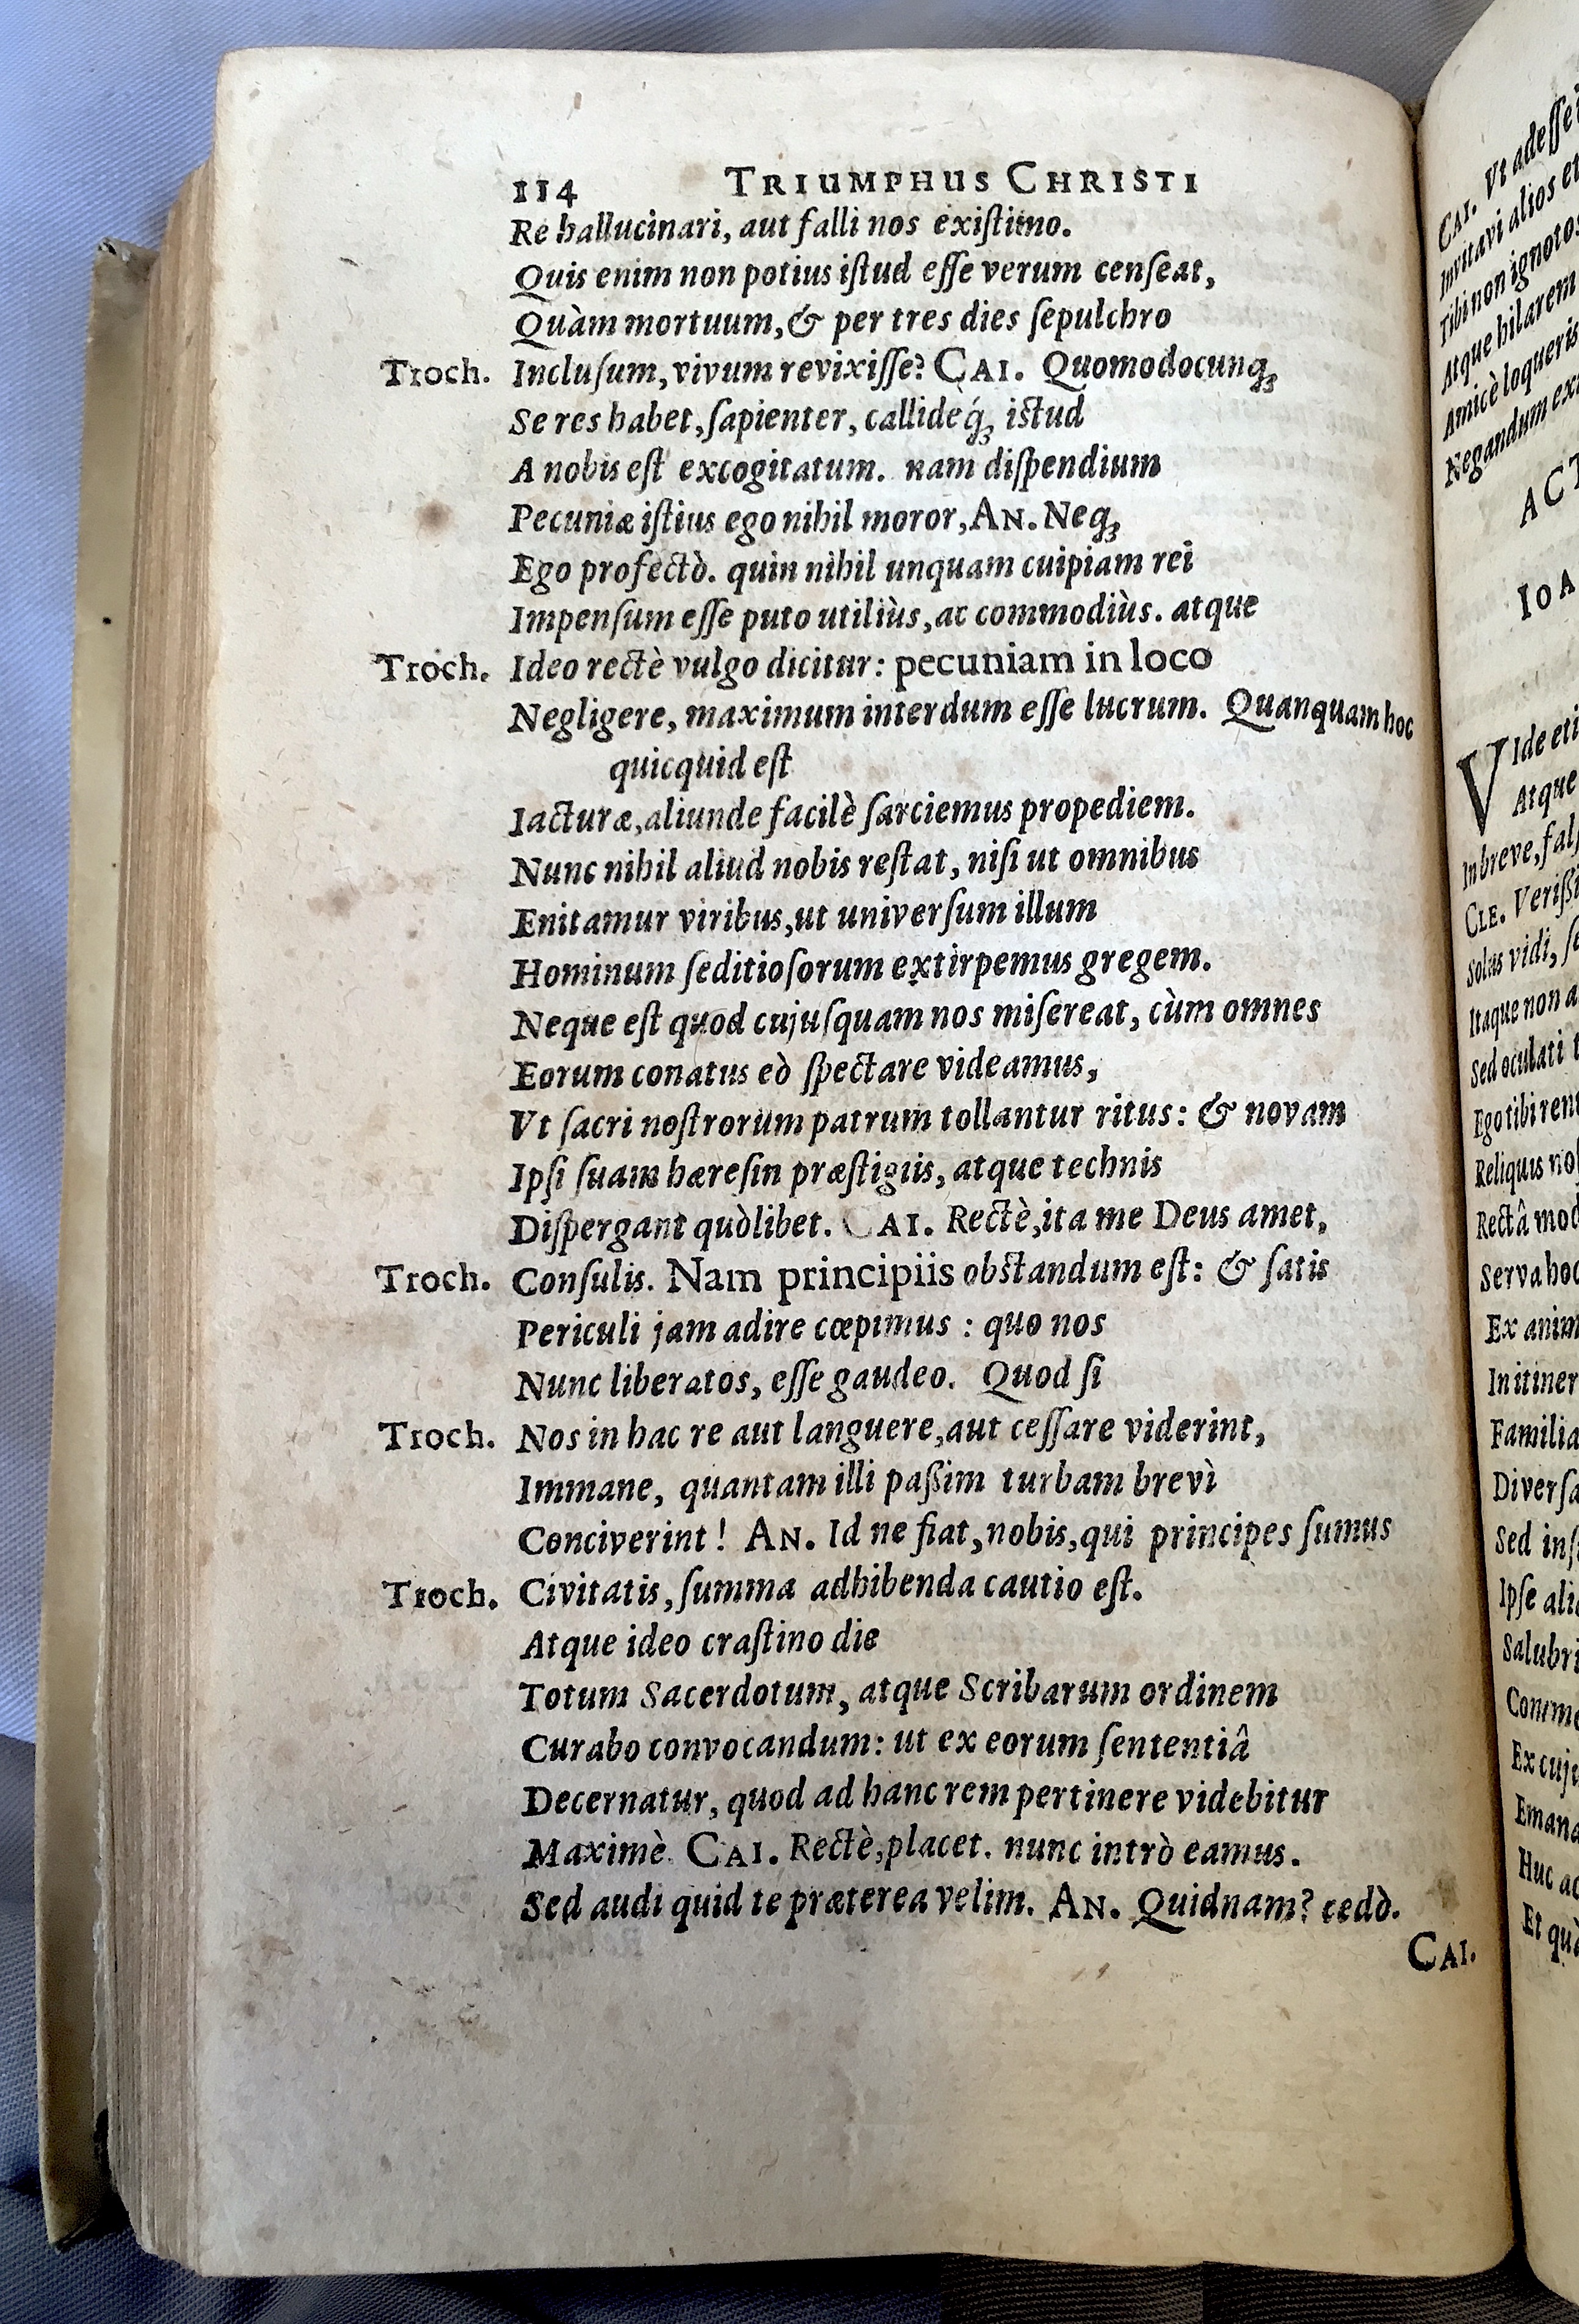 114 TRIUMPHUS CHRISTI
Re hallucinari, aut falli nos existimo.
Quis enim non potius istud esse verum censeat,
Quàm mortuum, & per tres dies sepulchro
Troch. Inclusum, vivum revixisse? CAI. Quomodocunq;
Se res habet, sapienter, callideq́; istud
A nobis est excogitatum. nam dispendium
Pecuniæ istius ego nihil moror, AN. Neq;
Ego profectò. quin nihil unquam cuipiam rei
Impensum esse puto utiliùs, ac commodiùs. atque
Troch. Ideo rectè vulgo dicitur: pecuniam in loco
Negligere, maximum interdum esse lucrum. Quanquam hoc
quicquid est
Iacturæ, aliunde facilè sarciemus propediem.
Nunc nihil aliud nobis restat, nisi ut omnibus
Enitamur viribus, ut universum illum
Hominum seditiosorum extirpemus gregem.
Neque est quod cujusquam nos misereat, cùm omnes
Eorum conatus eò spectare videamus,
Vt sacri nostrorum patrum tollantur ritus: & novam
Ipsi suam hæresin præstigiis, atque technis
Dispergant quòlibet. CAI. Rectè, ita me Deus amet,
Troch. Consulis. Nam principiis obstandum est: & satis
Periculi jam adire cœpimus : quo nos
Nunc liberatos, esse gaudeo. Quod si
Troch. Nos in hac re aut languere, aut cessare viderint,
Immane, quantam illi passim turbam brevì
Conciverint! AN. Id ne fiat, nobis, qui principes sumus
Troch. Civitatis, summa adhibenda cautio est.
Atque ideo crastino die
Totum Sacerdotum, atque Scribarum ordinem
Curabo convocandum: ut ex eorum sententiâ
Decernatur, quod ad hanc rem pertinere videbitur
Maximè. CAI. Rectè, placet. nunc intrò eamus.
Sed audi quid te præterea velim. AN. Quidnam? cedò.
CAI.
CAI. Vt adesse
Invitavi alios
Tibi non ignotos
Atque hilarem
Amicè loqueris
Negandum
VIde
Atque
In breve,
CLE.
Solus vidi,
Itaque non
Sed oculati
Ego tibi
Reliquis
Rectâ
Serva hoc
Ex
In
Sed
Ipse
Huc
Et